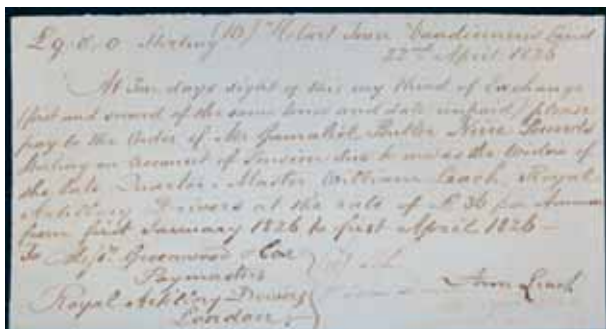 £9.0.0. Sterling (10) Hobart Town Vandiemens Land
22nd April 1826
At Ten days sight of this my third of Exchange
(first and second of the same tenor and date unpaid) please
pay to the Order of Mr Gamaliel Butler Nine Pounds
Sterling on Account of Pension due to me as the Widow of
the late Quarter Master William Leach, Royal
Artillery Drivers at the rate of £36 per Annum
from first January 1826 to first April 1826 —
To Messrs. Greenwood & Cox
Paymasters
Royal Artillery Drivers
London
Ann Leach